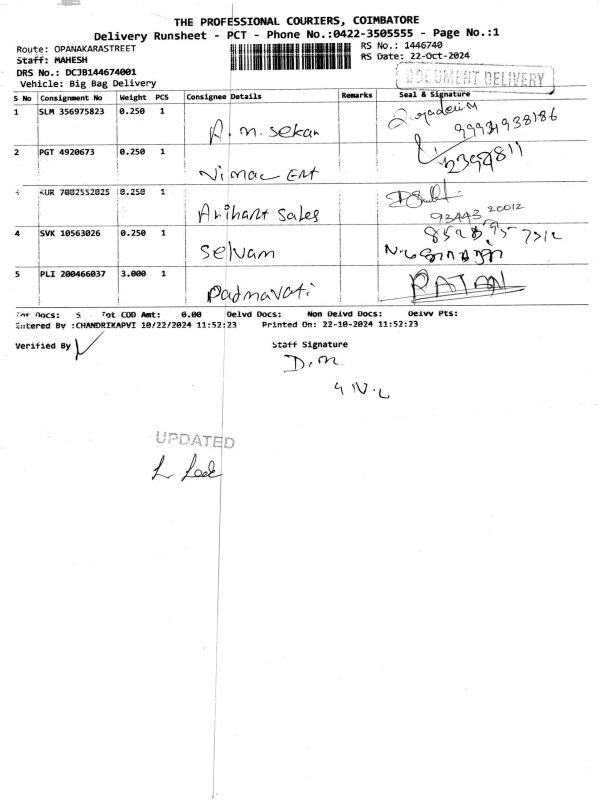 THE PROFESSIONAL COURIERS, COIMBATORE
Delivery Runsheet - PCT - Phone No.:0422-3505555 - Page No.:1
Route: OPANAKARASTREET RS No.: 1446740
Staff: MAHESH RS Date: 22-Oct-2024
DRS No.: DCJB144674001
Vehicle: Big Bag Delivery DOCUMENT DELIVERY
S No Consignment No Weight PCS Consignee Details Remarks Seal & Signature
1 SLM 356975823 0.250 1 A. m. sekar
2 PGT 4920673 0.250 1 Nimac Ent
KUR 7002552825 0.250 1 Arihant Sales 93443 20012
4 SVK 10563026 0.250 1 Selvam
5 PLI 200466037 3.000 1 Padmavati RATAN
Tot Docs: 5 Tot COD Amt: 0.00 Delvd Docs: Non Delvd Docs: Delvv Pts:
Entered By :CHANDRIKAPVI 10/22/2024 11:52:23 Printed On: 22-10-2024 11:52:23
Verified By Staff Signature
D.M.
UPDATED